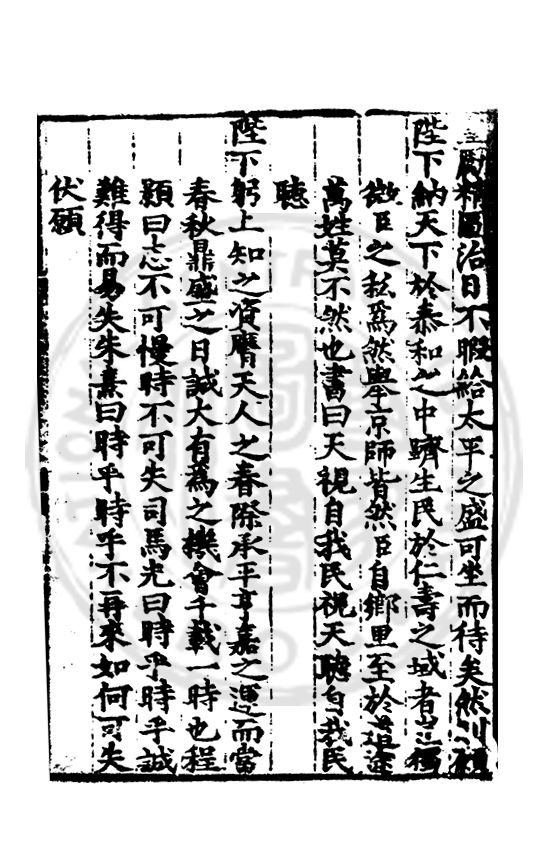 主勵精圖治日不暇給太平之盛可坐而待矣然則頌
陛下納天下於泰和之中躋生民於仁壽之域者豈獨
微臣之私爲然舉京師皆然臣自鄉里至於道途
萬姓莫不然也書曰天視自我民視天聽自我民
聽
陛下躬上知之資膺天人之眷際承平亨嘉之運而當
春秋鼎盛之日誠大有爲之機會千載一時也程
顥曰志不可慢時不可失司馬光曰時乎時乎誠
難得而易失朱熹曰時乎時乎不再來如何可失
伏願